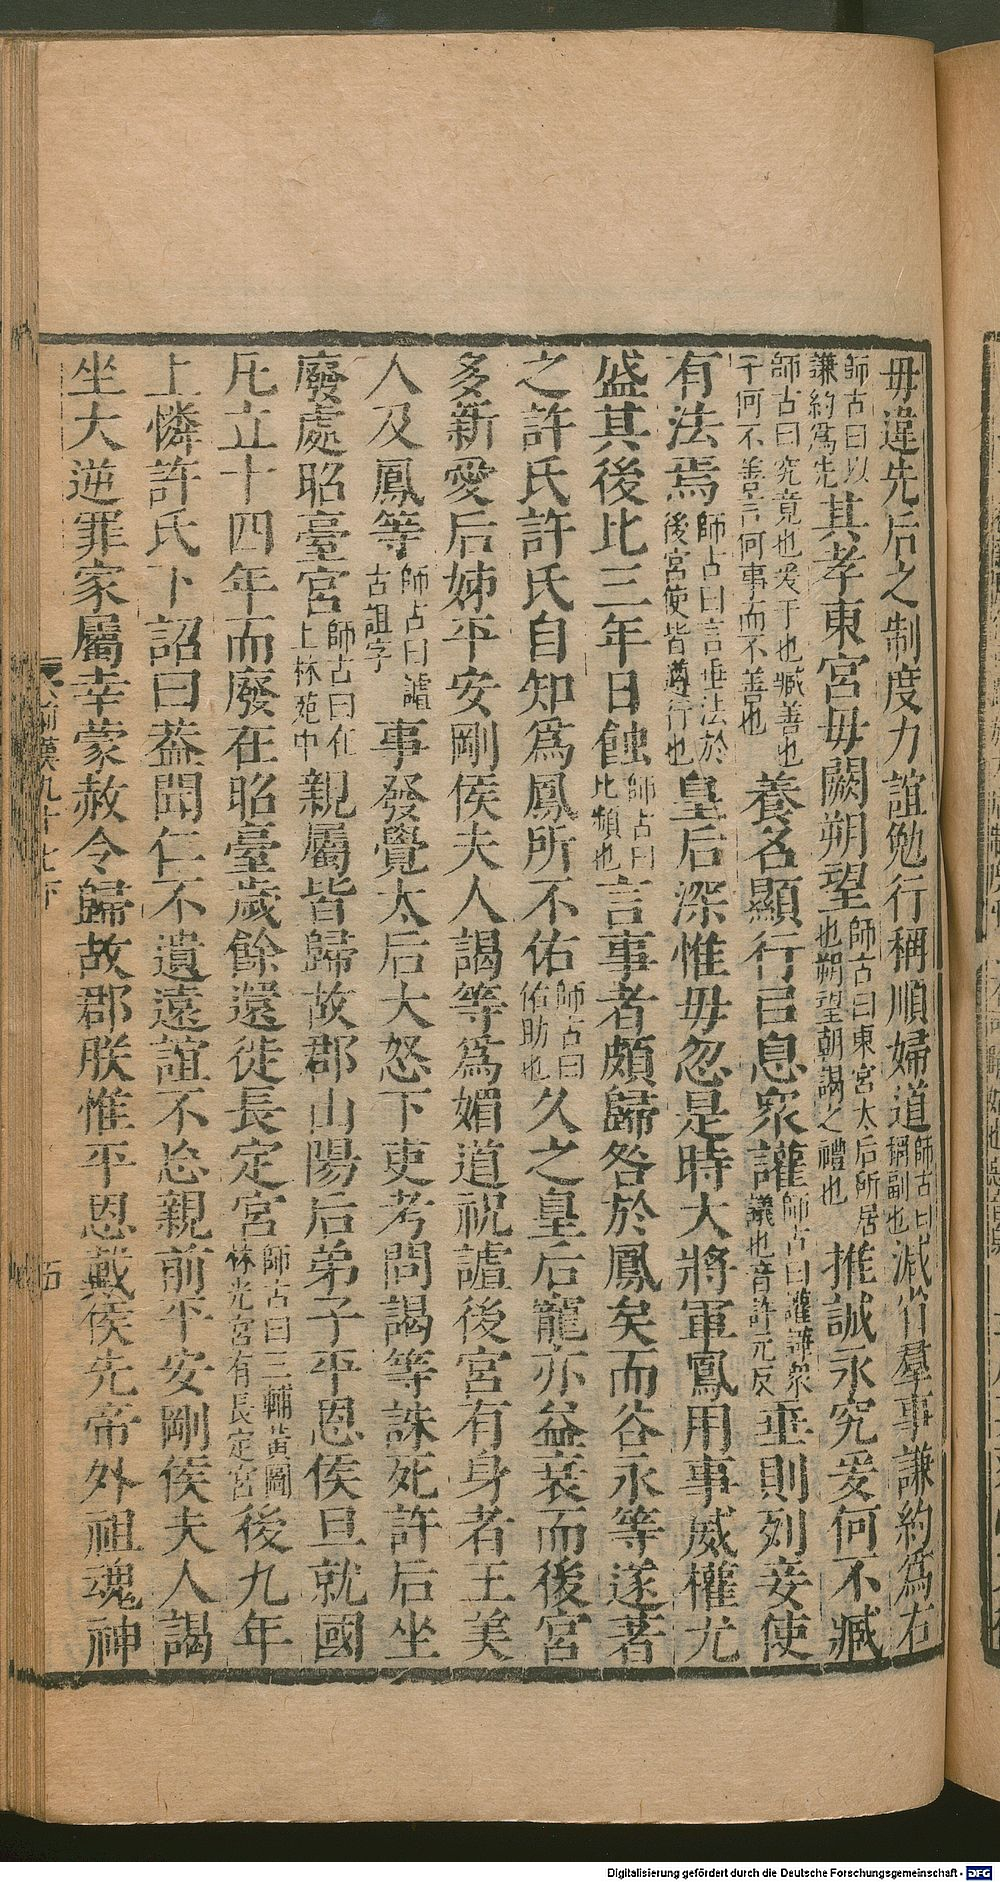 毋違先后之制度力誼勉行稱順婦道師古曰稱副也減省羣事謙約爲右
師古曰以謙約爲先其孝東宮毋闕朔望師古曰東宮太后所居也朔望朝謁之禮也推誠永究爰何不臧
師古曰究竟也爰于也臧善也于何不善言何事而不善也養名顯行㠯息衆讙師古曰讙譁衆議也音許元反垂則列妾使
有法焉師古曰言垂法於後宮使皆遵行也皇后深惟毋忽是時大將軍鳳用事威權尤
盛其後比三年日蝕師古曰比頻也言事者頗歸咎於鳳矣而谷永等遂著
之許氏許氏自知爲鳳所不佑師古曰佑助也久之皇后寵亦益衰而後宮
多新愛后姊平安剛侯夫人謁等爲媚道祝謯後宮有身者王美
人及鳳等師古曰謯古詛字事發覺太后大怒下吏考問謁等誅死許后坐
廢處昭臺宮師古曰在上林苑中親屬皆歸故郡山陽后弟子平恩侯旦就國
凡立十四年而廢在昭臺歲餘還徙長定宮師古曰三輔黃圖林光宮有長定宮後九年
上憐許氏下詔曰葢聞仁不遺遠誼不忘親前平安剛侯夫人謁
坐大逆罪家屬幸蒙赦令歸故郡朕惟平恩戴侯先帝外祖魂神
前漢九十七下
五
Digitalisierung gefördert durch die Deutsche Forschungsgemeinschaft - DFG